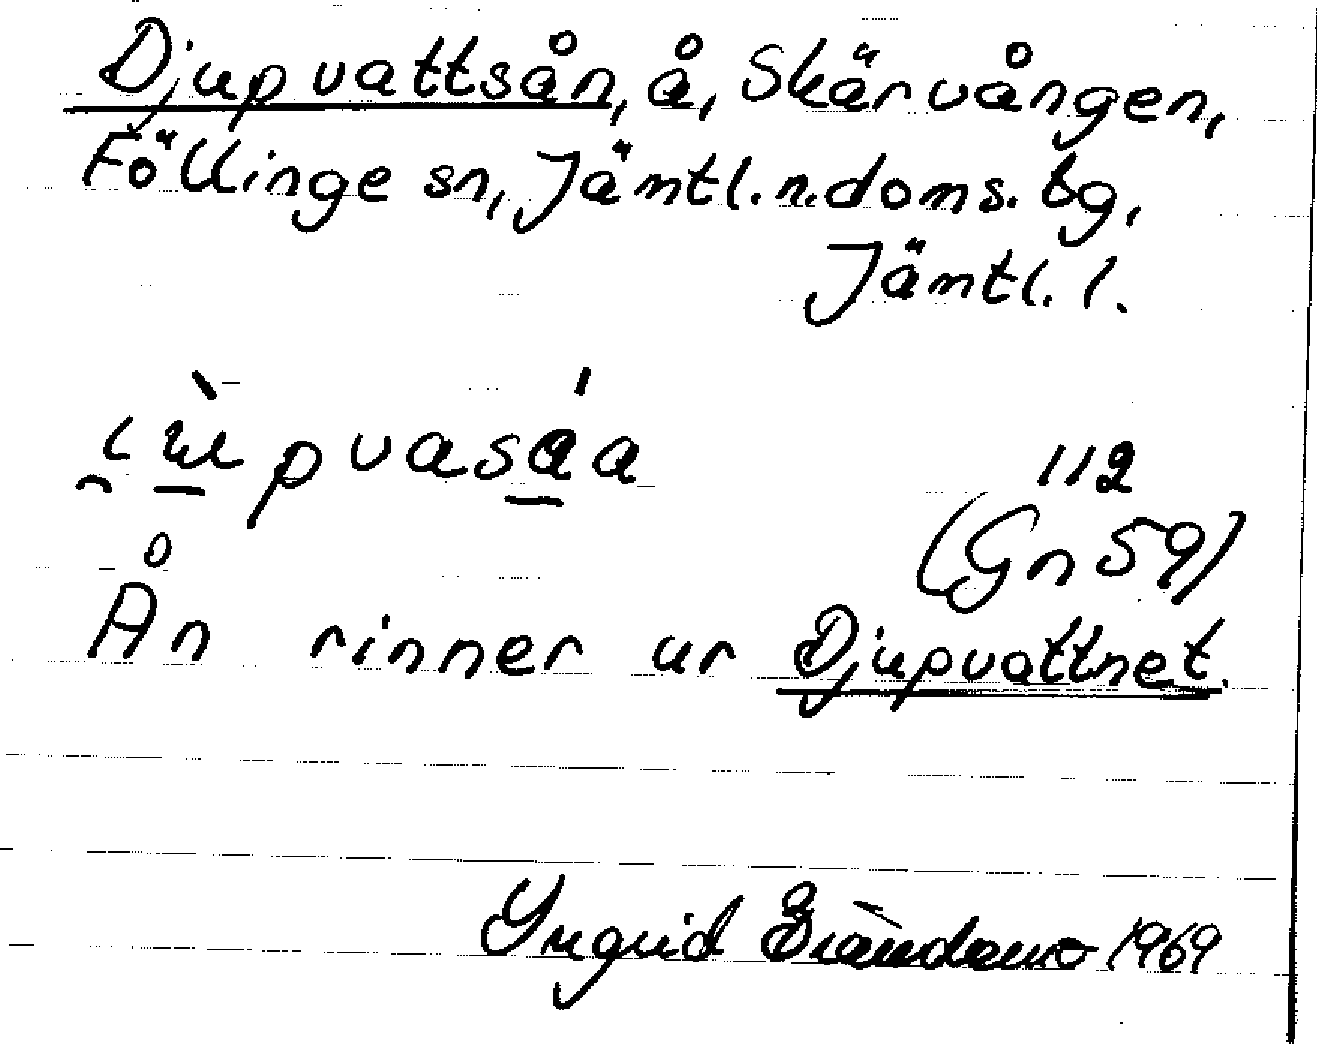 Djupvattsån, å, Skärvången,
Föllinge sn, Jämtl. n. doms. tg,
Jämtl. l.
112
(Gn 59)
Ån rinner ur Djupvattnet.
Ingrid 1969